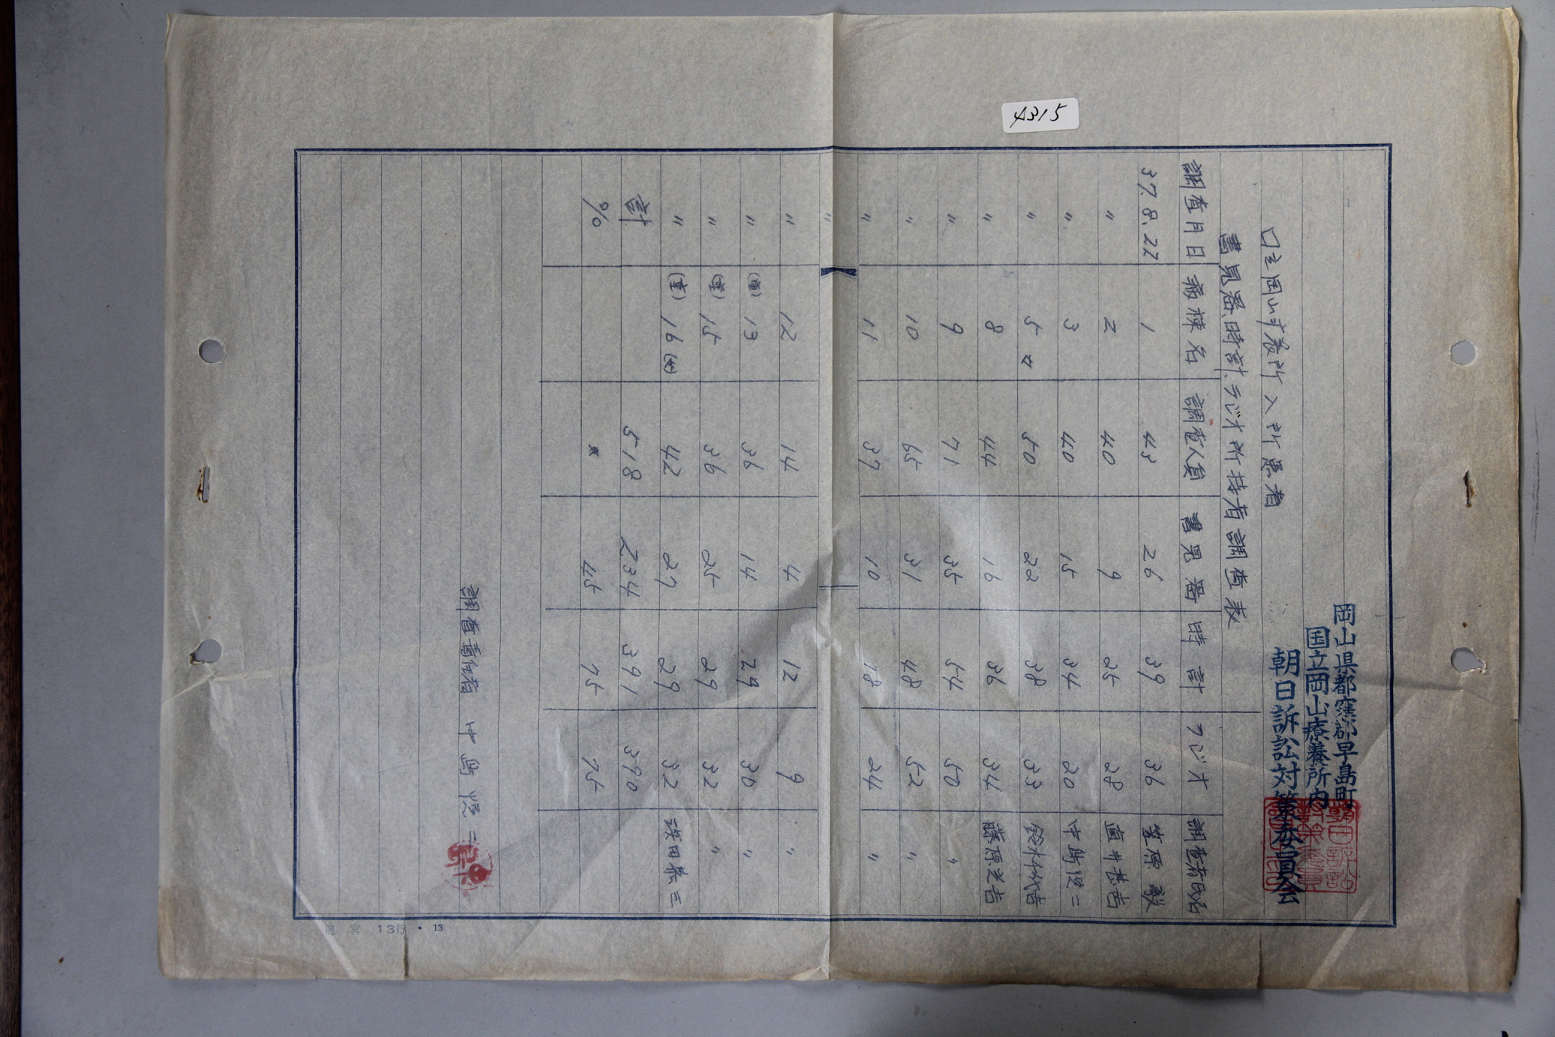 4315
岡山県都窪郡早島町
国立岡山療養所内
朝日訴訟対策委員会
国立岡山療養所入所患者
書見器、時計、ラジオ所持者調査表
調査月日 病棟名 調査人員 書見器 時計 ラジオ 調査者氏名
37.8.22 1 43 26 39 36 笠原
〃 2 40 9 25 28
〃 3 40 15 34 20 中島 二
〃 5女 50 22 38 33 鈴木 吉
〃 8 44 16 36 34 藤原 吉
〃 9 71 35 54 50 〃
〃 10 65 31 48 52 〃
〃 11 37 10 18 24 〃
〃
〃 12 14 4 12 9 〃
〃 (重)13 36 14 29 30 〃
〃 (重)15 36 25 29 32 〃
〃 (重)16(女) 42 27 29 32 田恭三
計 518 234 391 390
% 45 75 75
調査責任者 中島 二
13